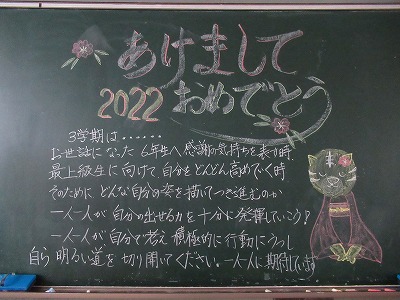 あけまして
2022 おめでとう
3学期は・・・・・・
お世話になった6年生へ感謝の気持ちを表す時
最上級生に向けて自分をどんどん高めていく時
そのために どんな自分の姿を描いてつき進むのか
一人一人が 自分の出せる力を 十分に発揮していこう!
一人一人が 自分で考え 積極的に行動にうつし
自ら 明るい道を 切り開いてください。一人一人に期待しています